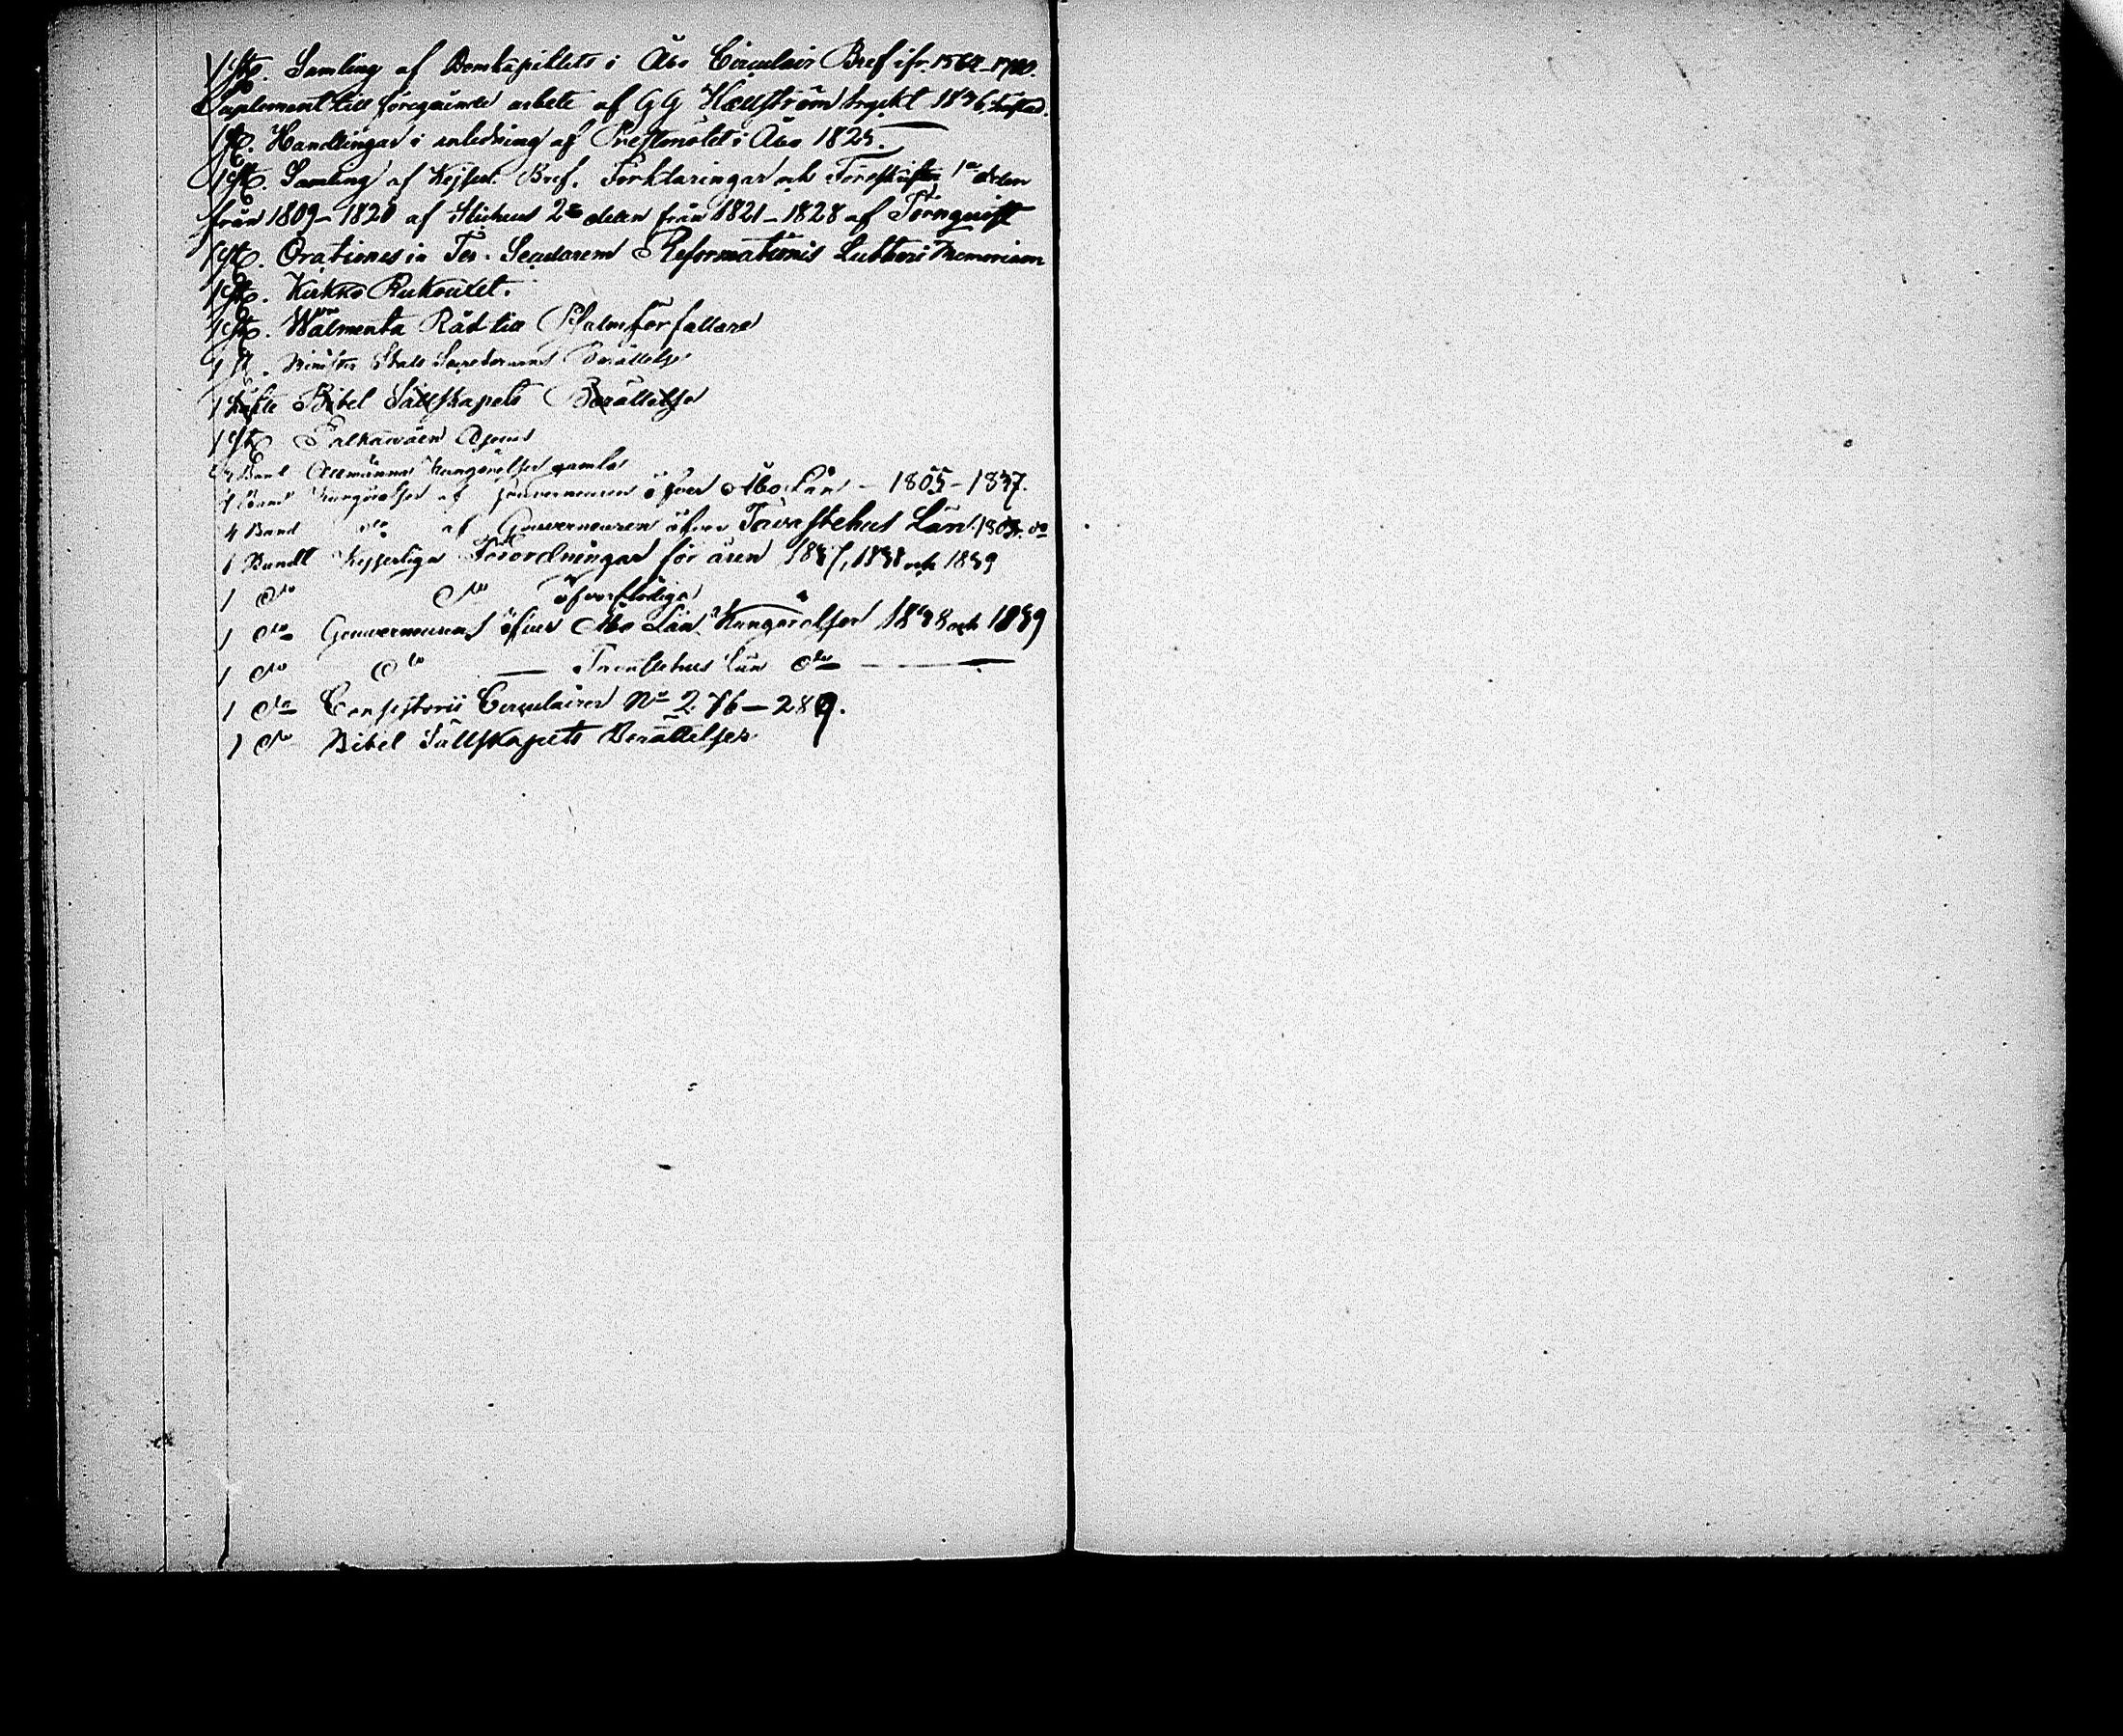 1 st. Samling af Domkapitlets i Åbo Circulair Bref ifr. 1564-1700.
Suplement till föregående arbete af G G Hællström trykt 1836 häftad.
1 st. Handlingar i anledning af Prestmötet i Åbo 1825.
1 st. Samling af Kejserl. Bref. Förklaringar och Föreskrifter 1a delen
från 1809-1820 af 2a delen från 1821-1828 af Törnquist
1 st. Orationes in Ter. Seculorem Reformationis Lutheri Memoriam
1 st. Kirkko Rukouxet.
1 st. Wälmenta Råd till Psalmförfattare
1 st. Minister Stats Secreterarens Berättelse
1 häfte Bibel Sällskapets Berättelse
1 st
Band Allmänna Kungörelser gamla
4 Band Kungörelser af Gouverneuren öfver Åbo Län - 1805-1837.
4 Band dto af Gouverneuren öfver Tavastehus Län do
1 Bundt Kejserliga Förordningar för åren 1837, 1838 och 1839
1 dto dto öfverflödiga
1 dto Gouverneurens öfver Åbo Län Kungörelser 1838 och 1839
1 dto dto — Tavastehus Län dto —
1 do Consistorii Circulairer No 276-289.
1 dto Bibel Sällskapets Berättelser